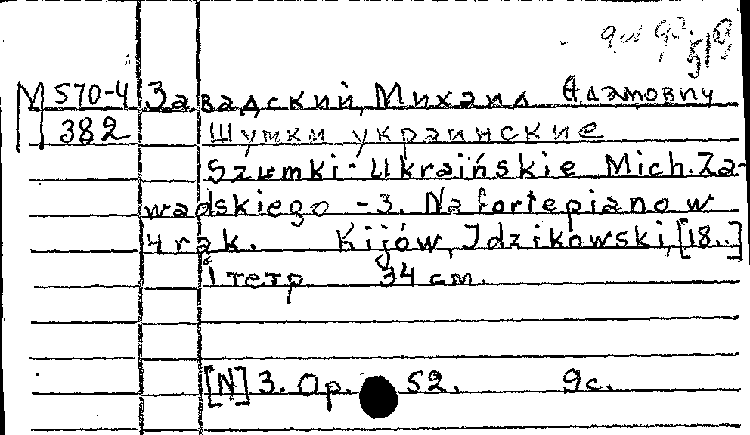 М 570-4 Завадский, Михаил Адамович
382 Шумки украинские
Szumki-Ukraińskie Mich. Za-
wadskiego -3. Na fortepiano w
4 rąk. Kijów, Idzikowski, [18..]
1 тетр 34 cm.
[N] 3. Op. 52. 9с.